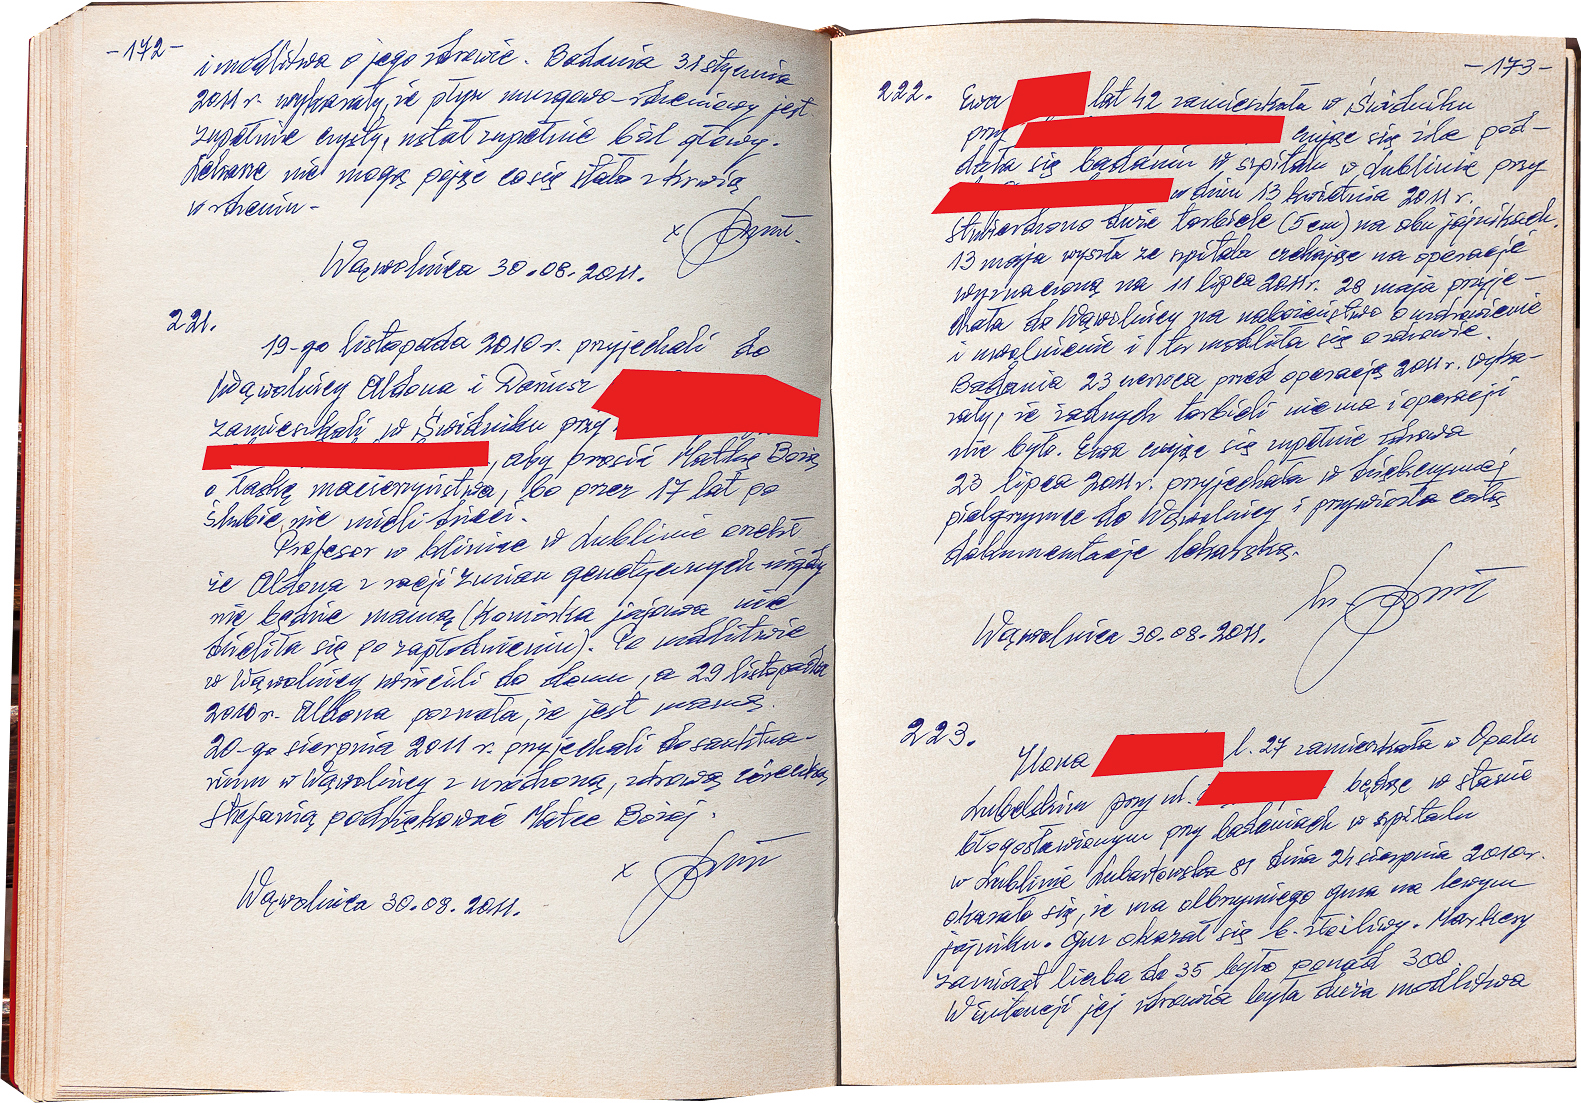 -172-
i modlitwa o jego zdrowie. Badania 31 stycznia
2011 r. wykazały, że płyn mózgowo-rdzeniowy jest
zupełnie czysty, ustał zupełnie ból głowy.
Lekarze nie mogą pojąć co się stało z krwią
w rdzeniu -
x
Wąwolnica 30.08.2011.
221.
19-go listopada 2010 r. przyjechali do
Wąwolnicy Aldona i Dariusz
zamieszkali w Świdniku przy
, aby prosić Matkę Bożą
o łaskę macierzyństwa, bo przez 17 lat po
ślubie, nie mieli dzieci.
Profesor w klinice w Lublinie orzekł
że Aldona z racji zmian genetycznych nigdy
nie będzie mamą (komórka jajowa nie
dzieliła się po zapłodnieniu). Po modlitwie
w Wąwolnicy wrócili do domu, a 29 listopada
2010 r. Aldona poznała, że jest mamą.
20-go sierpnia 2011 r. przyjechali do sanktua-
rium w Wąwolnicy z urodzoną, zdrową córeczką
Stefanią podziękować Matce Bożej.
x
Wąwolnica 30.08.2011.
-173-
222. Ewa lat 42 zamieszkała w Świdniku
przy czując się źle pod-
dała się badaniu w szpitalu w Lublinie przy
w dniu 13 kwietnia 2011 r.
stwierdzono duże torbiele (5 cm) na obu jajnikach.
13 maja wyszła ze szpitala czekając na operację
wyznaczoną na 11 lipca 2011 r. 28 maja przyje-
chała do Wąwolnicy na nabożeństwo o uzdrowienie
i uwolnienie i tu modliła się o zdrowie.
Badania 23 czerwca przed operacją 2011 r. wyka-
zały, że żadnych torbieli nie ma i operacji
nie było. Ewa czując się zupełnie zdrowa
23 lipca 2011 r. przyjechała w dziękczynnej
pielgrzymce do Wąwolnicy i przywiozła całą
dokumentację lekarską.
Wąwolnica 30.08.2011.
223.
Ilona l. 27 zamieszkała w Opolu
Lubelskim przy ul. będąc w stanie
błogosławionym przy badaniach w szpitalu
w Lublinie Lubartowska 81 dnia 24 sierpnia 2010 r.
okazało się, że ma olbrzymiego guza na lewym
jajniku. Guz okazał się b. złośliwy. Markery
zamiast liczba do 35 było ponad 300.
W intencji jej zdrowia była duża modlitwa